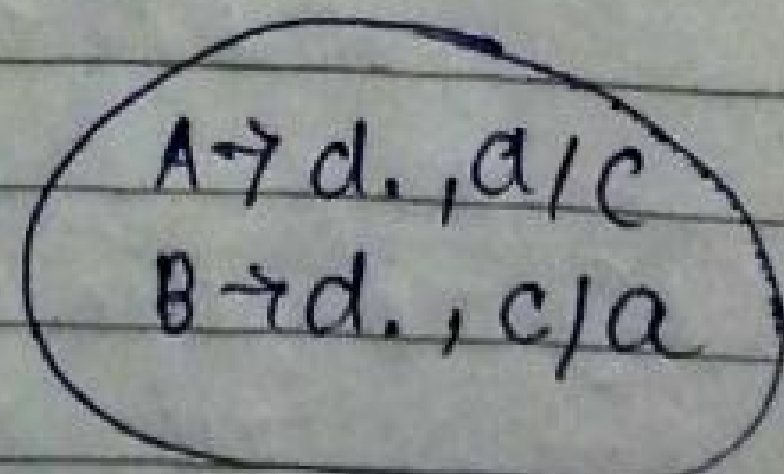 A → d. , a/c
B → d. , c/a